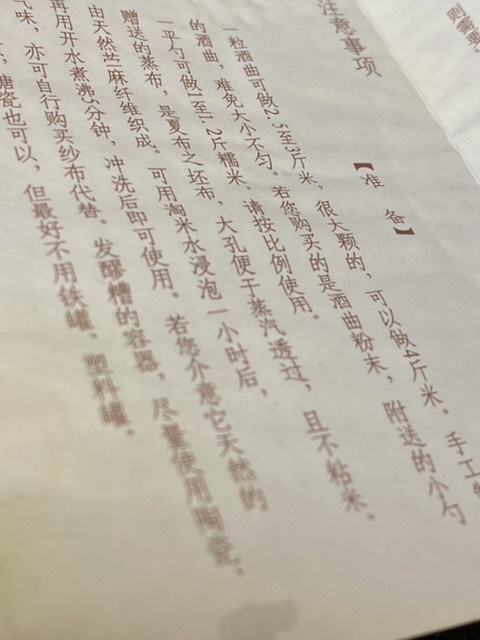 则需要
注意事项
【准备】
一粒酒曲可做2.5至3斤米,很大颗的,可以做4斤米。手工
的酒曲,难免大小不匀。若您购买的是酒曲粉末,附送的小勺
一平勺可做1至1.2斤糯米,请按比例使用。
赠送的蒸布,是夏布之坯布,大孔便于蒸汽透过,且不粘米。
由天然苎麻纤维织成。可用淘米水浸泡一小时后,
再用开水煮沸5分钟,冲洗后即可使用。若您介意它天然的
气味,亦可自行购买纱布代替。发酵糟的容器,尽量使用陶瓷。
搪瓷也可以,但最好不用铁罐、塑料罐。